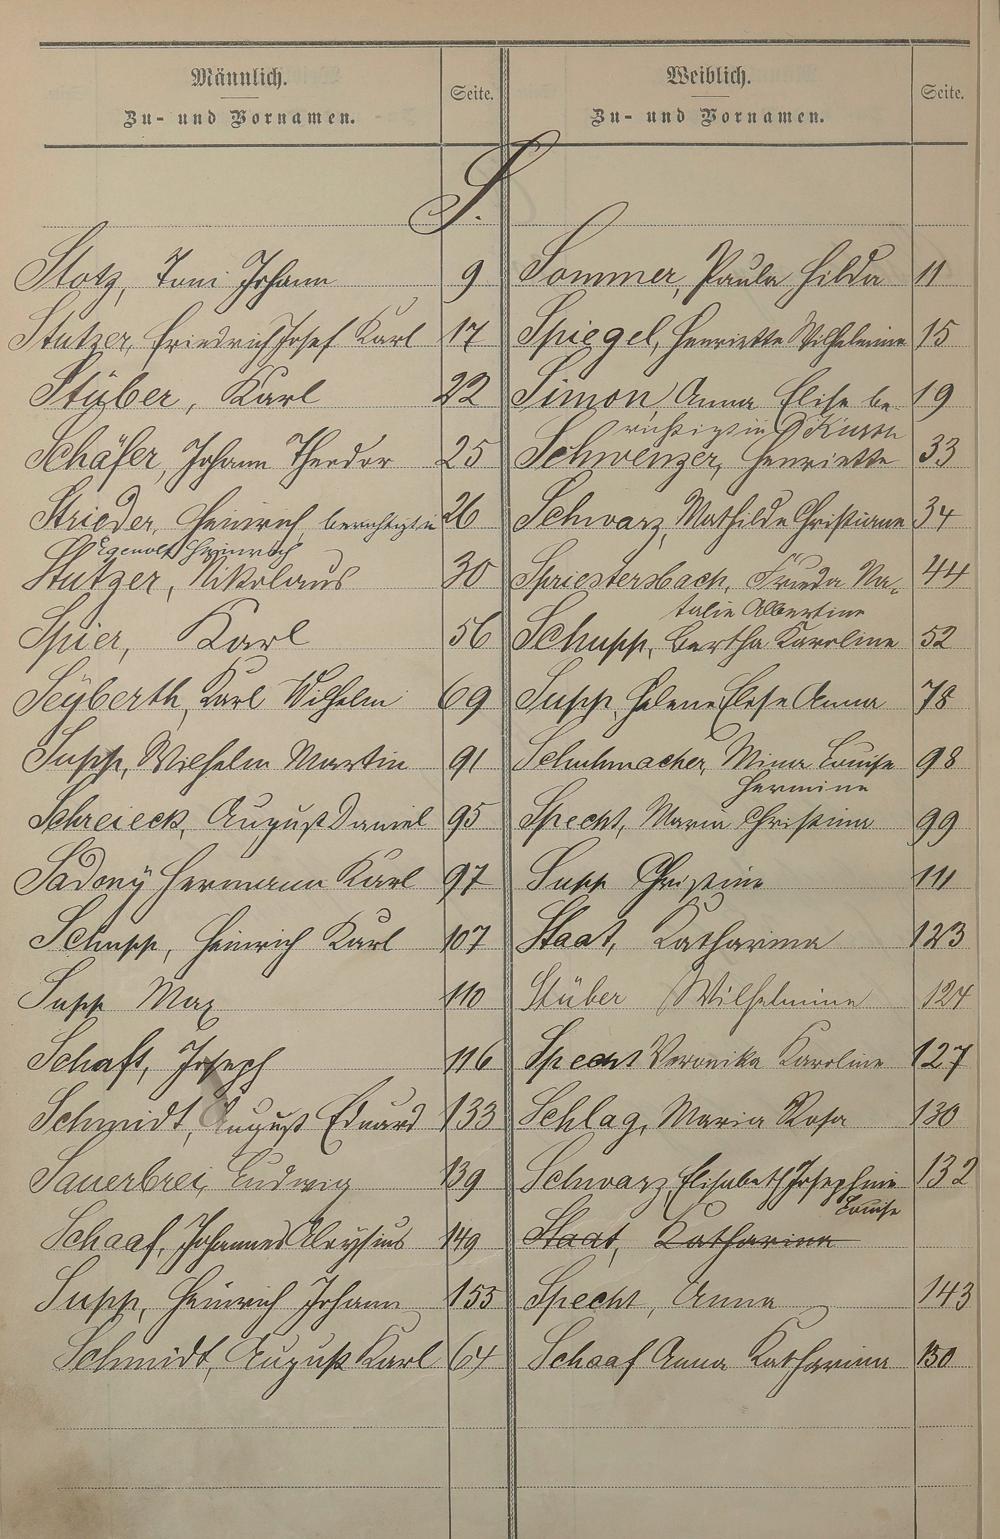 Männlich.
Zu- und Vornamen.
Seite.
Weiblich.
Zu- und Vornamen.
Seite.
S.
Stotz, Toni Johann 9
Stutzer, Friedrich Josef Karl 17
Stüber, Karl 22
Schäfer, Johann Theodor 25
Strieder, Heinrich, berichtigt in 26
Egenolf Heinrich
Stutzer, Nikolaus 30
Spier, Karl 56
Seyberth, Karl Wilhelm 69
Supp, Wilhelm Martin 91
Schreieck, August Daniel 95
Sadony Hermann Karl 97
Schupp, Heinrich Karl 107
Supp Max 110
Schaft, Joseph 116
Schmidt, August Eduard 133
Sauerbrei, Ludwig 139
Schaaf, Johannes Aloysius 149
Supp, Heinrich Johann 153
Schmidt, August Karl 64
Sommer, Paula Hilda 11
Spiegel, Henriette Wilhelmine 15
Simon, Anna Elise be- 19
richtigt in
Schwenzer, Henriette 33
Schwarz, Mathilde Christiane 34
Spriestersbach, Frieda Na- 44
talie Albertine
Schupp, Bertha Karoline 52
Supp, Helene Elise Anna 78
Schuhmacher, Mina Louise 98
Hermine
Specht, Maria Christina 99
Supp Christine 111
Staat, Katharina 123
Stüber Wilhelmine 124
Specht Veronika Karoline 127
Schlag, Maria Rosa 130
Schwarz, Elisabeth Josephine 132
Louise
Staat, Katharina
Specht, Anna 143
Schaaf Anna Katharina 150